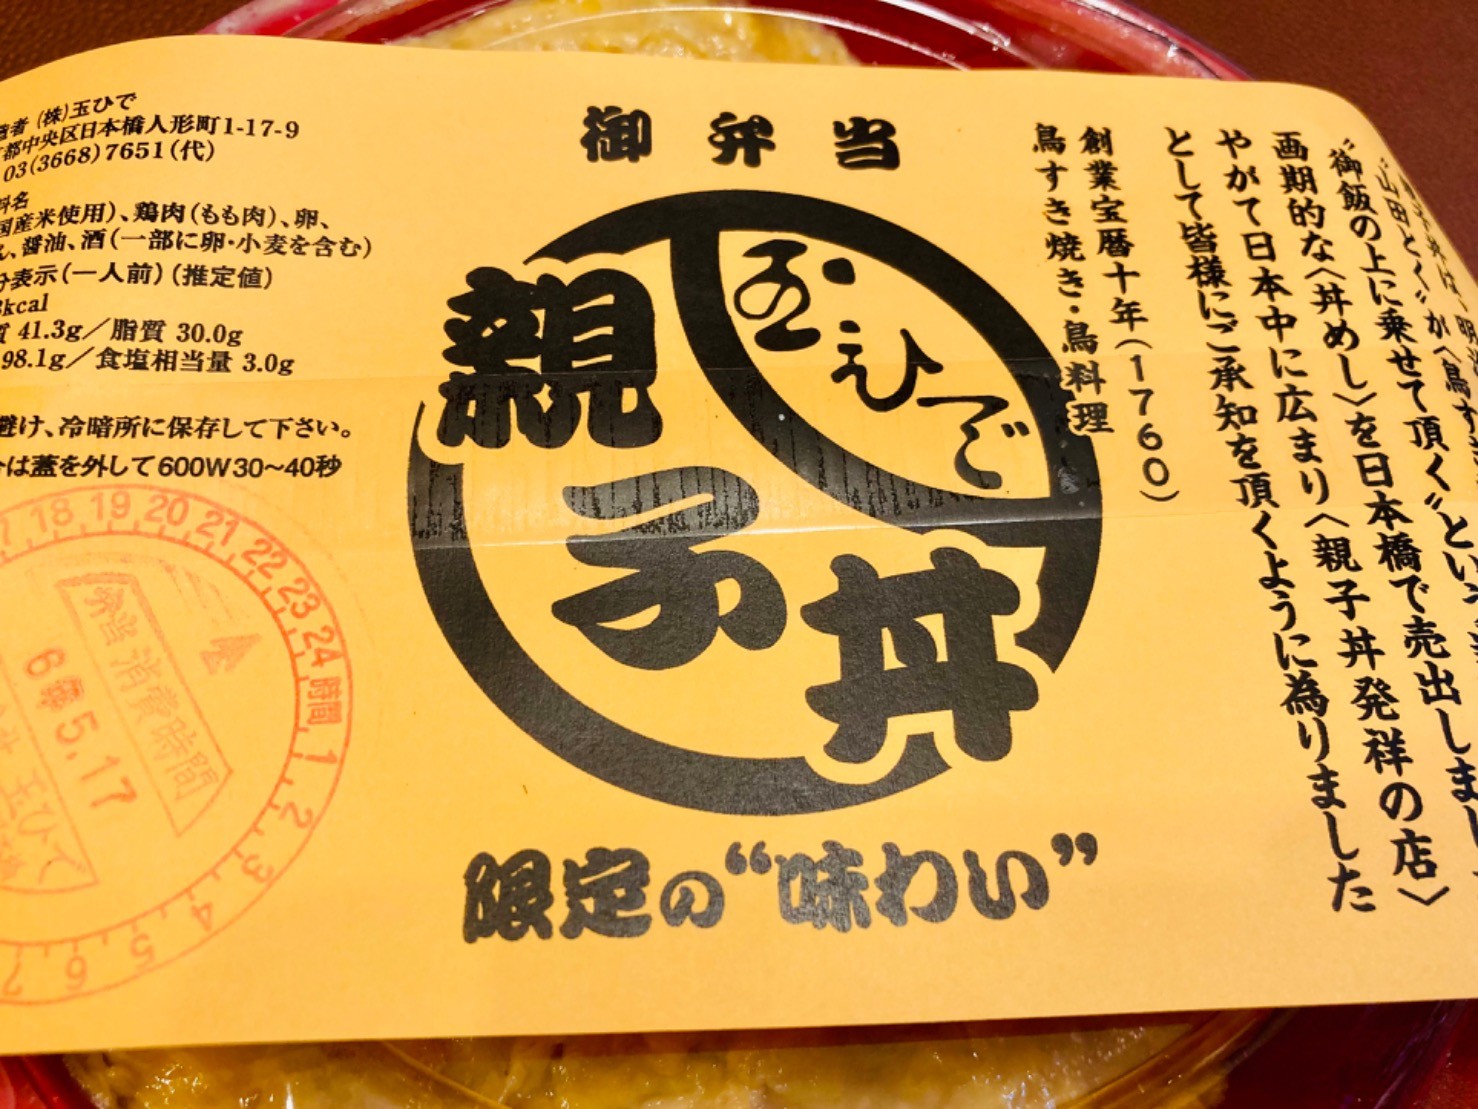 御弁当
玉ひで
親子丼
限定の“味わい”
(株)玉ひで
都中央区日本橋人形町1-17-9
03(3668)7651(代)
料名
国産米使用)、鶏肉(もも肉)、卵、
醤油、酒(一部に卵・小麦を含む)
分表示(一人前)(推定値)
kcal
質 41.3g/脂質 30.0g
98.1g/食塩相当量 3.0g
避け、冷暗所に保存して下さい。
は蓋を外して600W30~40秒
“山田とく”が〈鳥す
“御飯の上に乗せて頂く”とい
画期的な〈丼めし〉を日本橋で売出しまし
やがて日本中に広まり〈親子丼発祥の店〉
として皆様にご承知を頂くように為りました
創業宝暦十年(1760)
鳥すき焼き・鳥料理
18 19 20 21 22 23 24時間 1 2 3 4 5 6 7
弁当 消費時間
6 5.17
玉ひで